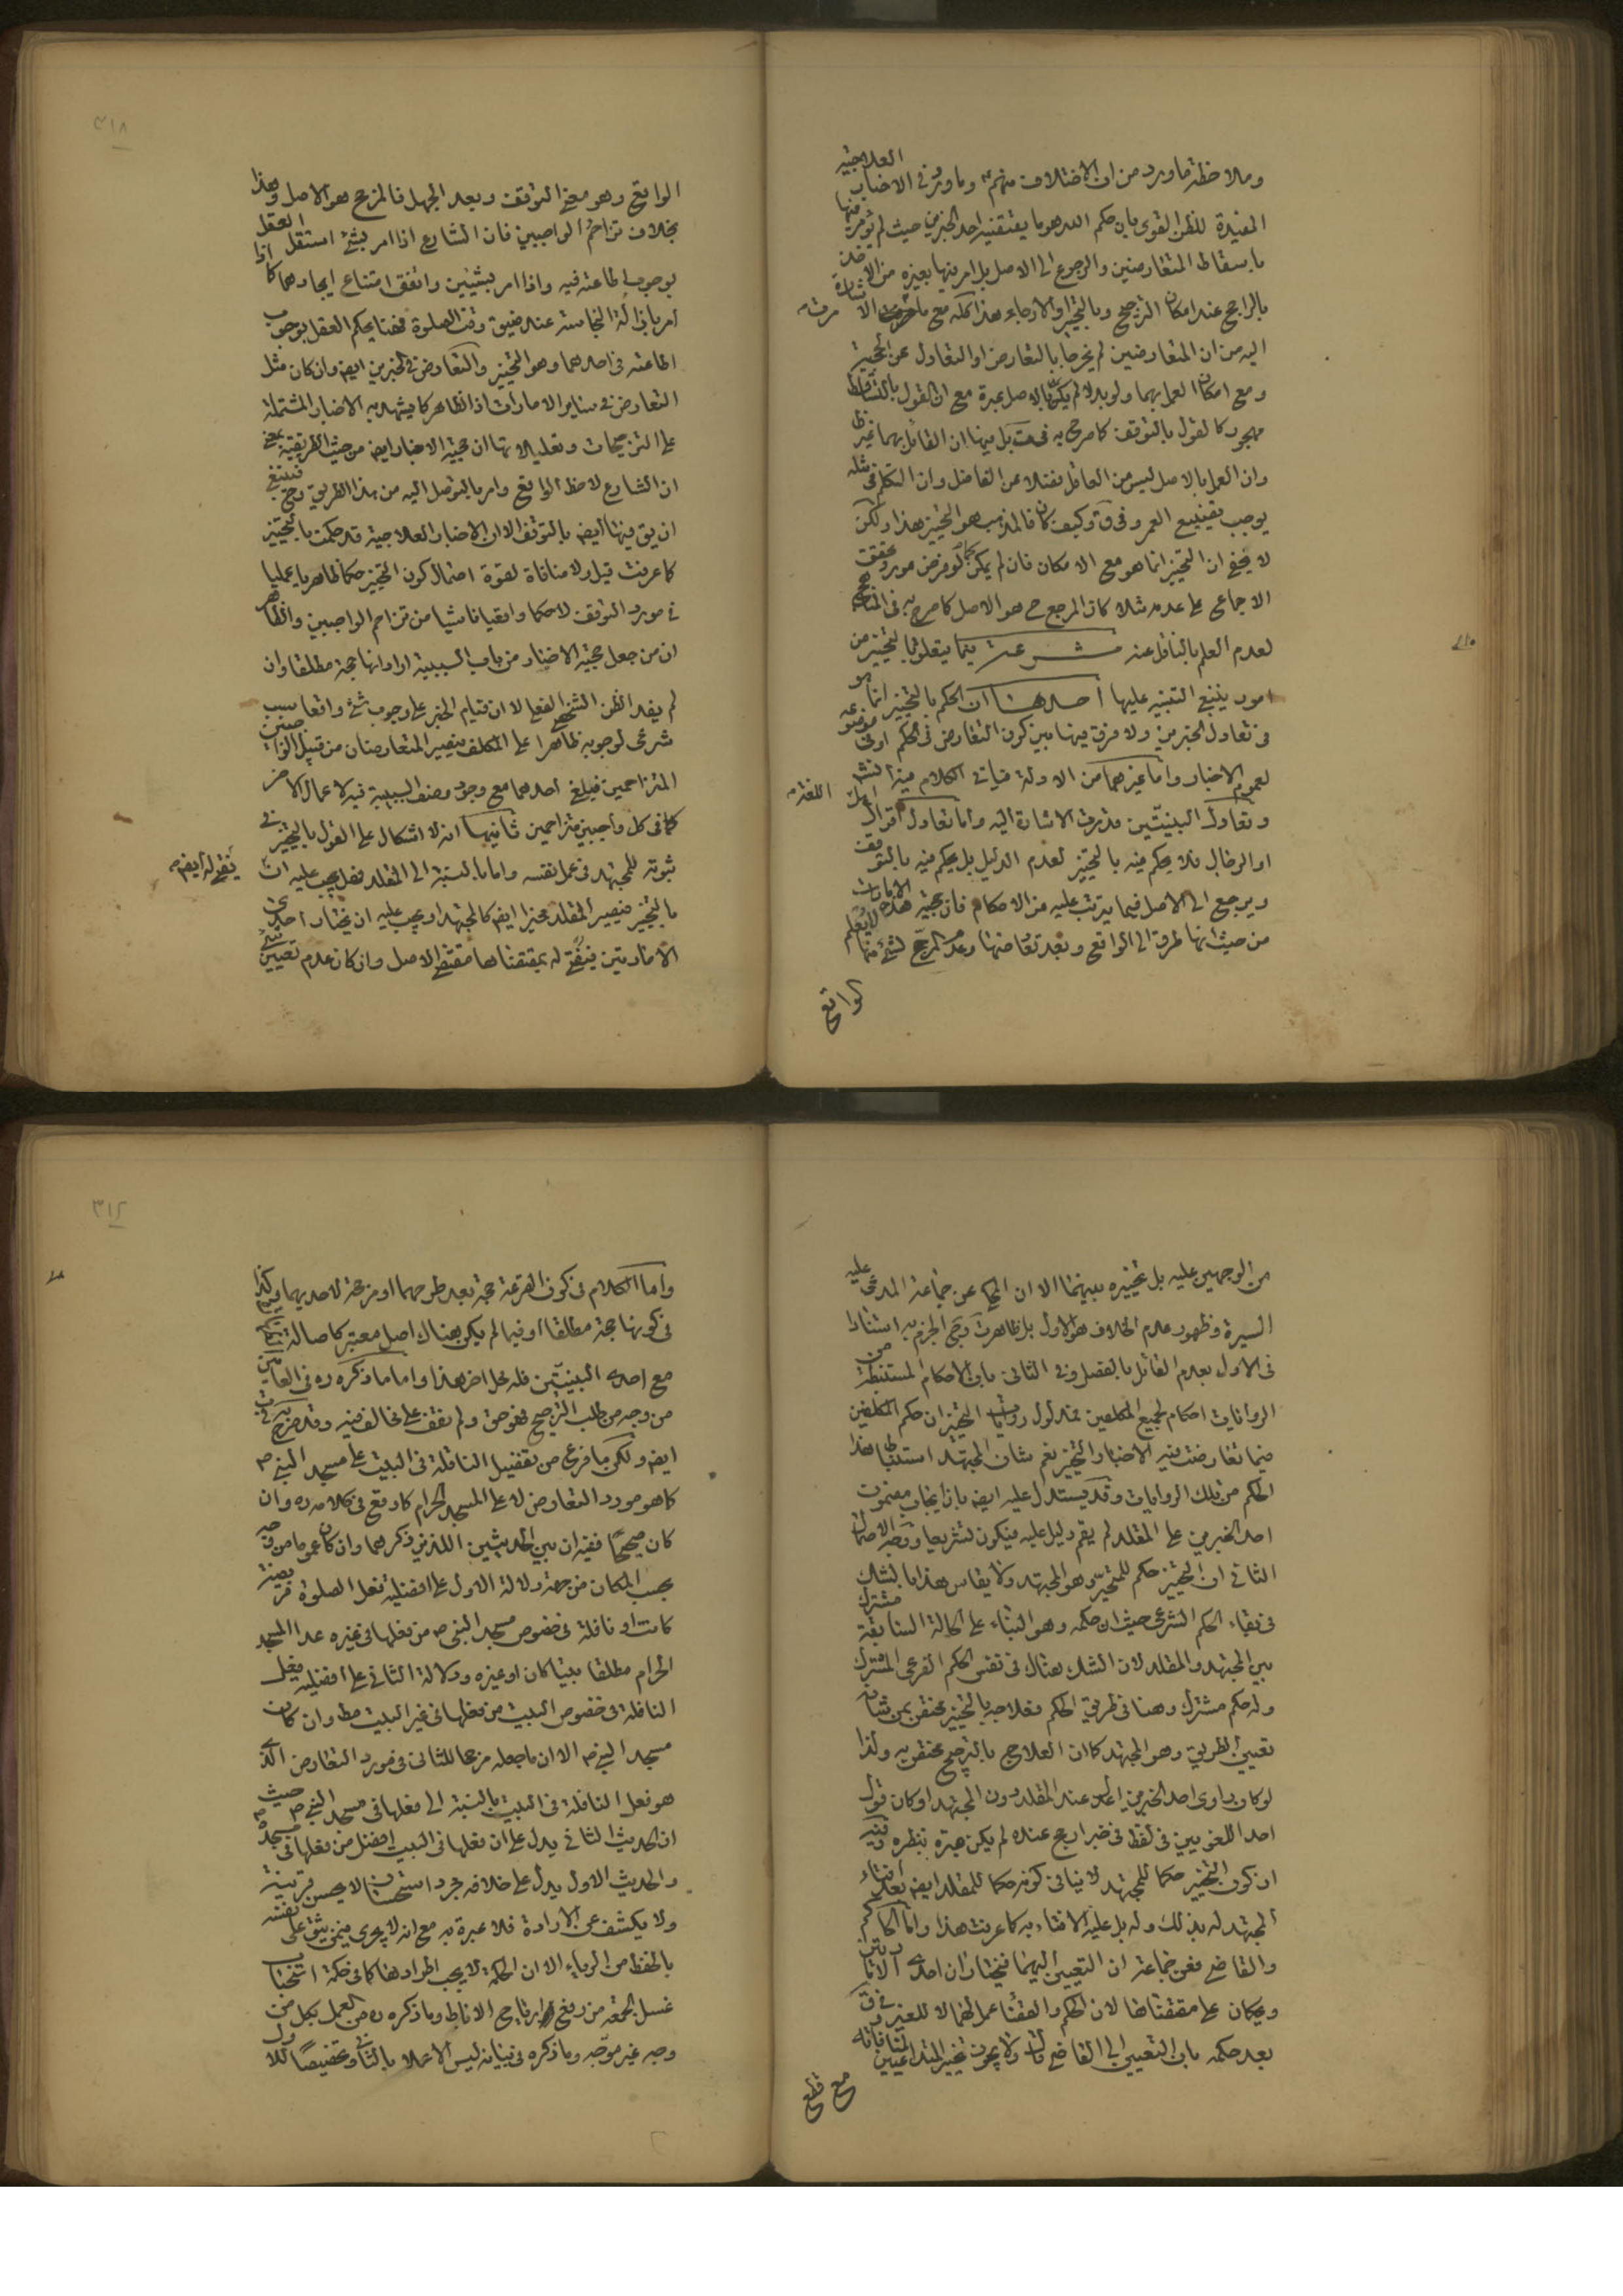 وملاحظة ما ورد من ان الاختلاف منهم ع وما ورد في الاخبار العلاجية
المفيدة للظن القوى بان حكم الله هو ما يقتضيه احد الخبرين حيث لم يؤمر فيها
باسقاط المتعارضين والرجوع الى الاصل بل امر فيها بغيره من الاخذ
بالراجح عند امكان الترجيح وبالتخيير او الارجاء هذا كله مع ما مرت الاشارة
اليه من ان المتعارضين لم يخرجا بالتعارض او التعادل عن الحجية
ومع امكان العمل بهما ولو بدلا لم يكن بالاصل عبرة مع ان القول بالتساقط
مهجور كالقول بالتوقف كما صرح به في بل فيها ان القائل بهما غير ظ
وان العمل بالاصل ليس من العاقل فضلا عن الفاضل وان التكلم في مثله
يوجب تضييع العمر وفي ق وكيف كان فالمذهب هو التخيير هذا ولكن
لا يخفى ان التخيير انما هو مع الامكان فان لم يكن كما لو فرض مورد تحقق
الاجماع على عدمه مثلا كان المرجع ح هو الاصل كما صرح به في المناهج
لعدم العلم بالناقل عنه شرعت يتما يتعلق بالتخيير من
امور ينبغي التنبيه عليها احدها ان الحكم بالتخيير انما هو
في تعادل الخبرين ولا فرق فيها بين كون التعارض في الحكم او في موضوعه
لعموم الاخبار واما غيرهما من الادلة فياتى الكلام فيه انش
وتعادل البينتين قد مرت الاشارة اليه واما تعادل اقوال اهل اللغة
او الرجال فلا يحكم فيه بالتخيير لعدم الدليل بل يحكم فيه بالتوقف
ويرجع الى الاصل فيما يترتب عليه من الاحكام فان حجية هذه الامارات
من حيث انها طرق الى الواقع وبعد تعارضها وعدم المرجح لشئ منها لا يعلم
الواقع
٣١٨
الواقع وهو معنى التوقف وبعد الجهل فالمرجع هو الاصل وهذا
بخلاف تزاحم الواجبين فان الشارع اذا امر بشئ استقل العقل
بوجوب اطاعته فيه واذا امر بشيئين واتفق امتناع ايجادهما كما اذا
امر بازالة النجاسة عند ضيق وقت الصلوة فهنا يحكم العقل بوجوب
اطاعته في احدهما وهو التخيير والتعارض في الخبرين ايض وان كان مثل
التعارض في ساير الامارات اذ الظاهر كما يشهد به الاخبار المشتملة
على الترجيحات وتعليلاتها ان حجية الاخبار ايض من حيث الطريقية بمعنى
ان الشارع لاحظ الواقع وامر بالتوصل اليه من هذا الطريق وح فينبغي
ان يق فيها ايض بالتوقف الا ان الاخبار العلاجية قد حكمت بالتخيير
كما عرفت قيل ولا منافاة لقوة احتمال كون التخيير حكما ظاهريا عمليا
في مورد التوقف لا حكما واقعيا ناشيا من تزاحم الواجبين والظاهر
ان من جعل حجية الاخبار من باب السببية اراد انها حجة مطلقا وان
لم يفد الظن الشخصي الفعلي لا ان قيام الخبر على وجوب شئ واقعا سبب
شرعي لوجوبه ظاهرا على المكلف فيصير المتعارضان من قبيل الواجبين
المتزاحمين فيلغى احدهما مع وجود وصف السببية فيه لاعمال الاخر
كما في كل واجبين متزاحمين ثانيها انه لا اشكال على القول بالتخيير في
ثبوته للمجتهد في عمل نفسه واما بالنسبة الى المقلد فهل يجب عليه ان يفتي له ايض
بالتخيير فيصير المقلد مخيرا ايض كالمجتهد او يجب عليه ان يختار احدى
الامارتين فيفتى له بمقتضاها مقتضى الاصل وان كان عدم تعيين شئ
من الوجهين عليه بل تخييره بينهما الا ان المحكي عن جماعة المدعى عليه
السيرة وظهور عدم الخلاف هو الاول بل ظاهر ت وحكى الجزم به استنادا
في الاول بعدم القائل بالفصل وفي الثاني بان الاحكام المستنبطة من
الروايات احكام لجميع المكلفين فمدلول روايات التخيير ان حكم المكلفين
فيما تعارضت فيه الاخبار التخيير نعم شان المجتهد استنباط هذا
الحكم من تلك الروايات وقد يستدل عليه ايض بان ايجاب مضمون
احد الخبرين على المقلد لم يقم دليل عليه فيكون تشريعا ووجه الاحتمال
الثاني ان التخيير حكم للمتحير وهو المجتهد ولا يقاس هذا بالشك
في بقاء الحكم الشرعي حيث ان حكمه وهو البناء على الحالة السابقة مشترك
بين المجتهد والمقلد لان الشك هناك في نفس الحكم الفرعي المشترك
وله حكم مشترك وهنا في طريق الحكم فعلاجه بالتخيير مختص بمن شانه
تعيين الطريق وهو المجتهد كما ان العلاج بالترجيح مختص به ولذا
لو كان راوى احد الخبرين اعدل عند المقلد دون المجتهد او كان قول
احد اللغويين في لفظ في خبر ارجح عنده لم يكن عبرة بنظره وفيه
ان كون التخيير حكما للمجتهد لا ينافي كونه حكما للمقلد ايض بعد افتاء
المجتهد له بذلك وله بل عليه الافتاء به كما عرفت هذا واما الحاكم
والقاضي فعن جماعة ان التعيين اليهما فيختاران احدى الامارتين
ويحكمان على مقتضاها لان الحكم والقضاء عملهما لا للغير وفي ق
بعد حكمه بان التعيين الى القاضي قال ولا يجوز تخيير المتداعيين لمنافاته
مع قطع
٣١٩
واما الكلام في كون القرعة حجة بعد طرحهما او مرجحة لاحديهما وكذا
في كونها حجة مطلقا او فيما لم يكن هناك اصل معتبر كاصالة
مع احدى البينتين فله محل اخر هذا واما ما ذكره ره في العامين
من وجه من طلب الترجيح فهو حق ولم نقف على مخالف فيه وقد صرح به في ب
ايض ولكن ما فرع من تفضيل النافلة في البيت على مسجد النبي ص
كما هو مورد التعارض لا على المسجد الحرام كما وقع في كلامه ره وان
كان صحيحا فيران بين الحديثين اللذين ذكرهما وان كان عموما من وجه
بحسب المكان من جهة دلالة الاول على افضلية فعل الصلوة فريضة
كانت او نافلة في خصوص مسجد النبي ص من فعلها في غيره عدا المسجد
الحرام مطلقا بيتا كان او غيره ودلالة الثاني على افضلية فعل
النافلة في خصوص البيت من فعلها في غير البيت مط وان كان
مسجد النبي ص الا ان ما جعله مرجحا للثاني في مورد التعارض الذي
هو فعل النافلة في البيت بالنسبة الى فعلها في مسجد النبي ص حيث
ان الحديث الثاني يدل على ان فعلها في البيت افضل من فعلها في مسجده ص
والحديث الاول يدل على خلافه مجرد استحسان لا يحسن قرينة
ولا يكشف عن الارادة فلا عبرة به مع انه لا يجرى فيمن يثق على نفسه
بالحفظ من الرياء الا ان الحكمة لا يجب اطرادها كما في حكمة استحباب
غسل الجمعة من رفع ارياح الاباط وما ذكره ره من العمل بكل من
وجه غير موجه وما ذكره في بيانه ليس الا عملا بالثاني وتخصيصا للاول